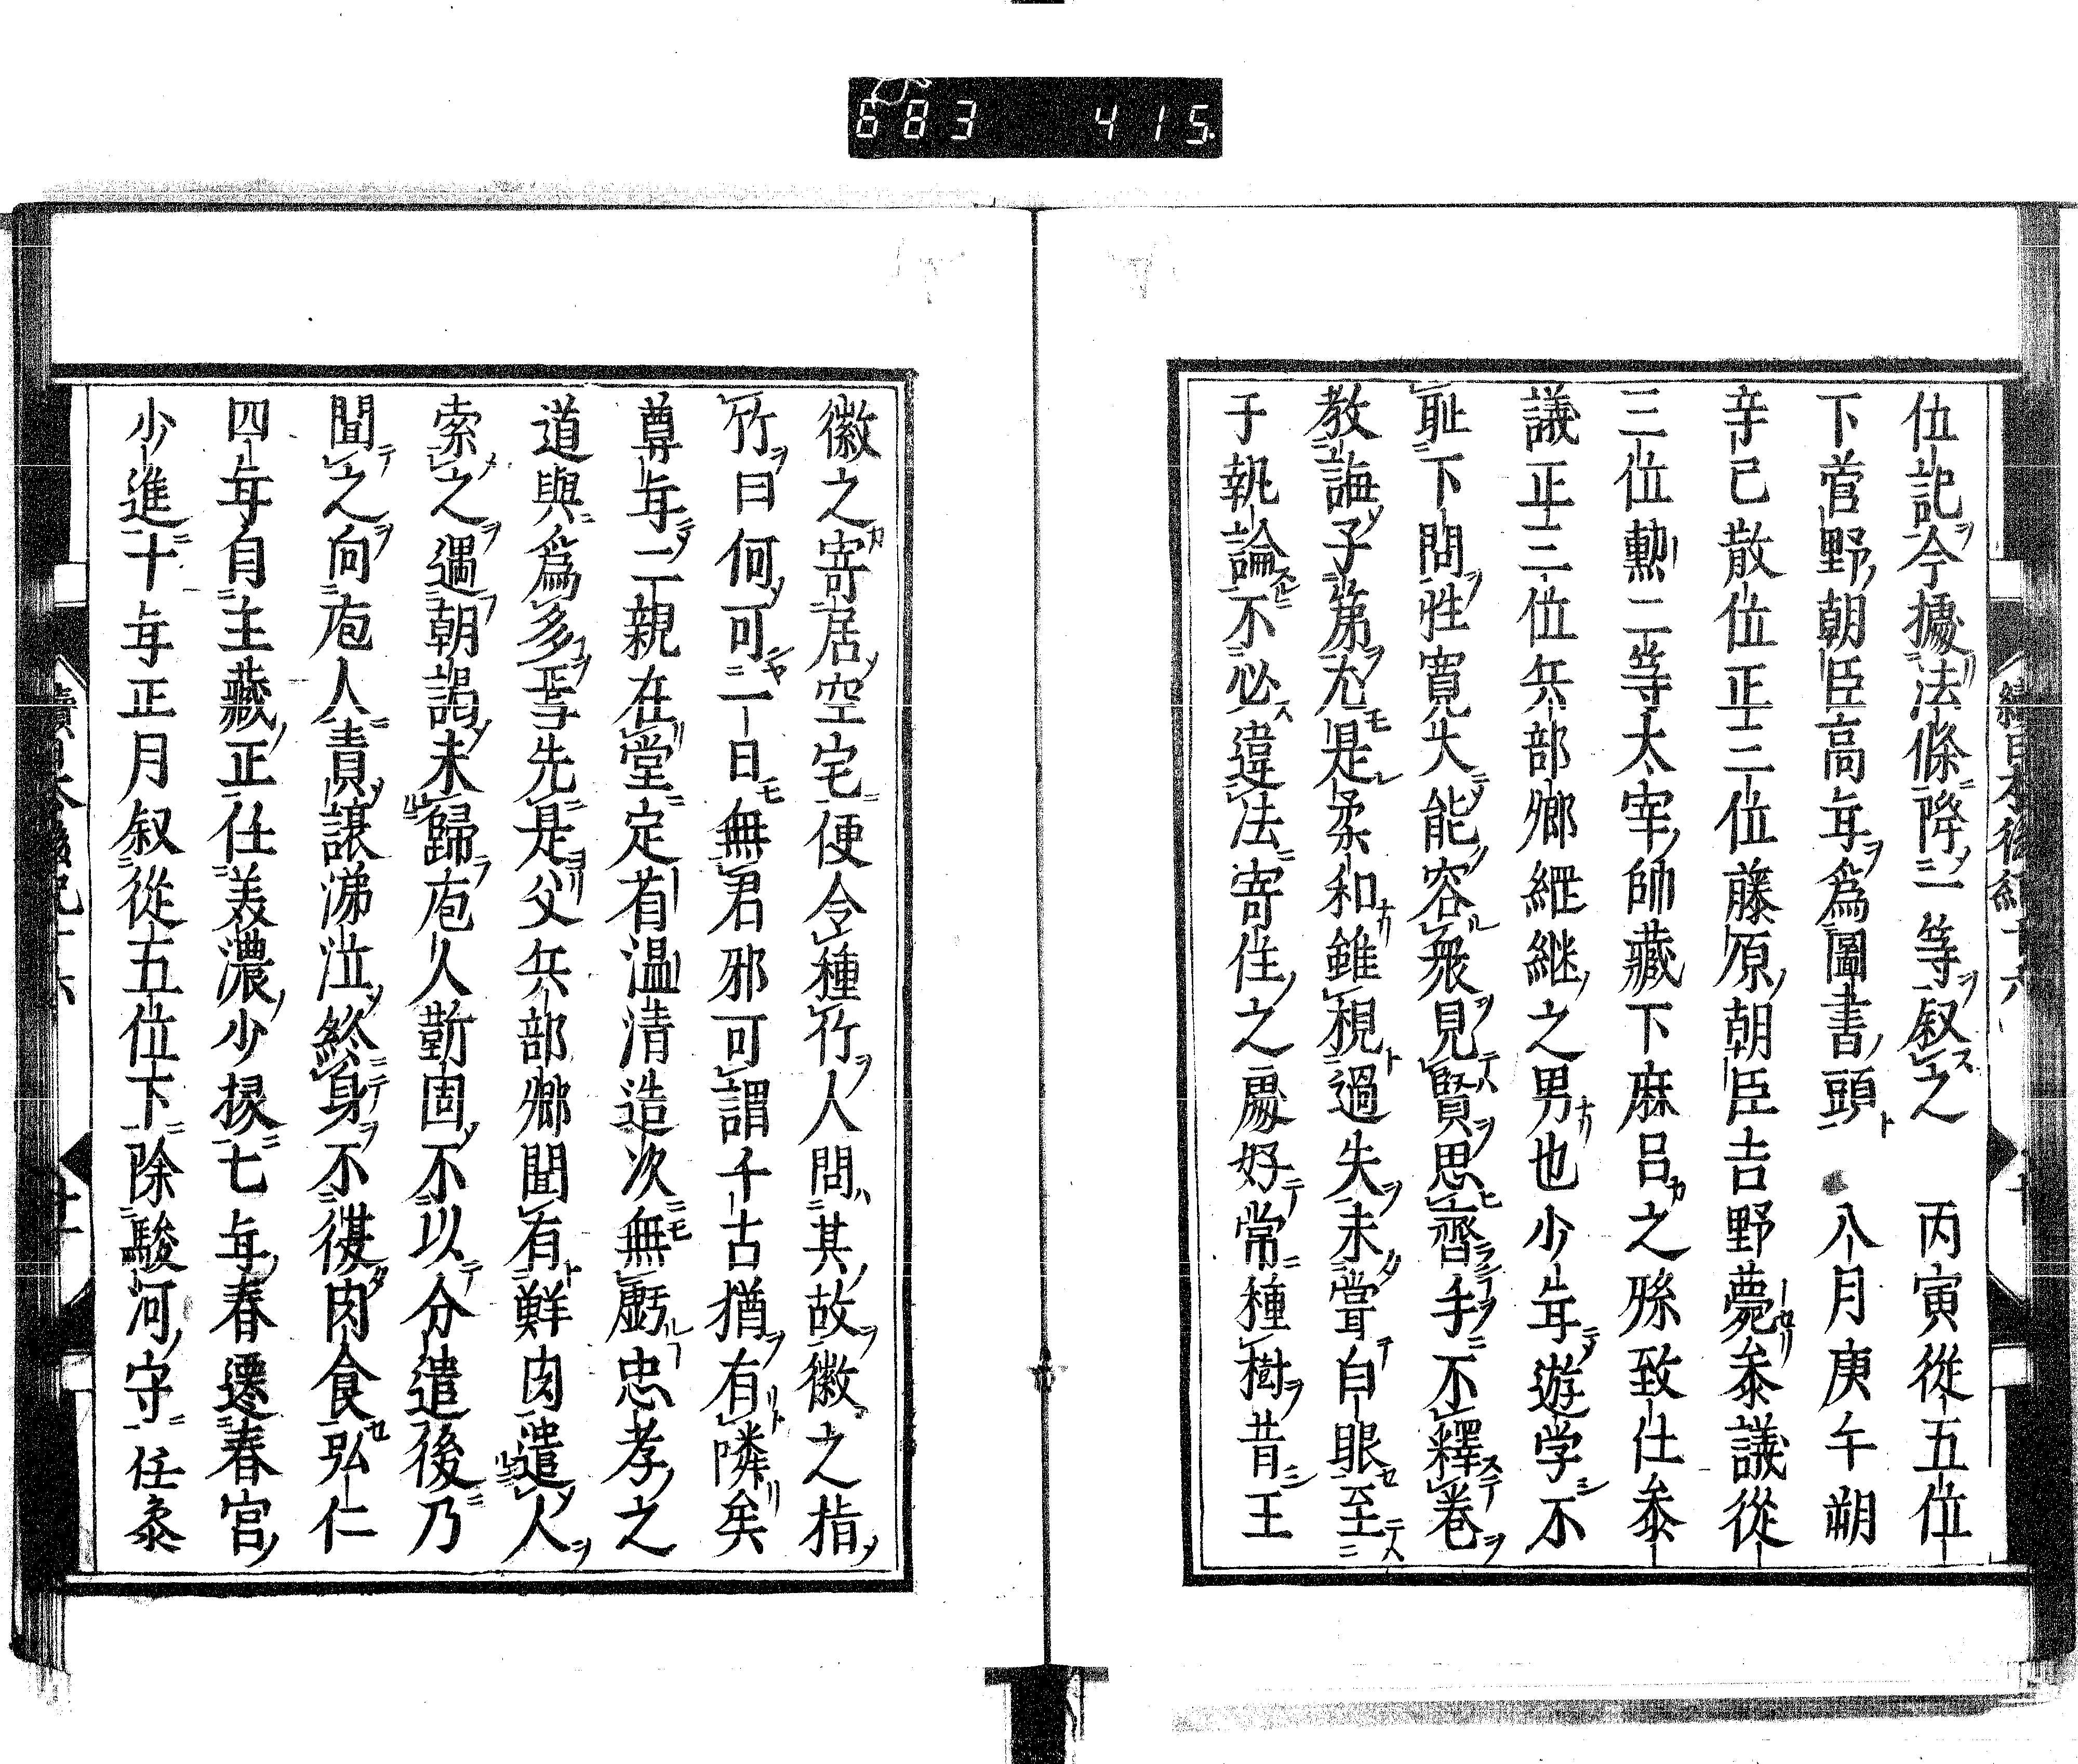 683 415
位記今據法條降一等叙之 丙寅從五位
下菅野朝臣高年爲圖書頭 八月庚午朔
辛已散位正三位藤原朝臣吉野薨叅議從
三位勳二等太宰帥藏下麻呂之孫致仕叅
議正三位兵部卿綑継之男也少年遊学不
耻下問性寛大能容衆見賢思齊手不釋卷
教誨子弟尤是柔和錐視過失未嘗白眼至
于執論不必違法寄住之處好常種樹昔王
徽之寄居空宅便令種竹人問其故徽之指
竹曰何可一日無君邪可謂千古猶有隣矣
尊年二親在堂定省温清造次無虧忠孝之
道與爲多焉先是父兵部卿聞有鮮肉遣人
索之遇朝謁未歸庖人斳固不以分遣後乃
聞之向庖人責譲涕泣終身不復肉食弘仁
四年自主藏正任美濃少掾七年春遷春宮
少進十年正月叙從五位下除駿河守任叅